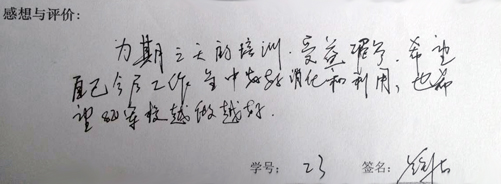 感想与评价:
为期三天的培训.受益匪浅.希望
自己今后工作.生中好好消化和利用,也希
望 军校越做越好.
学号: 23 签名: